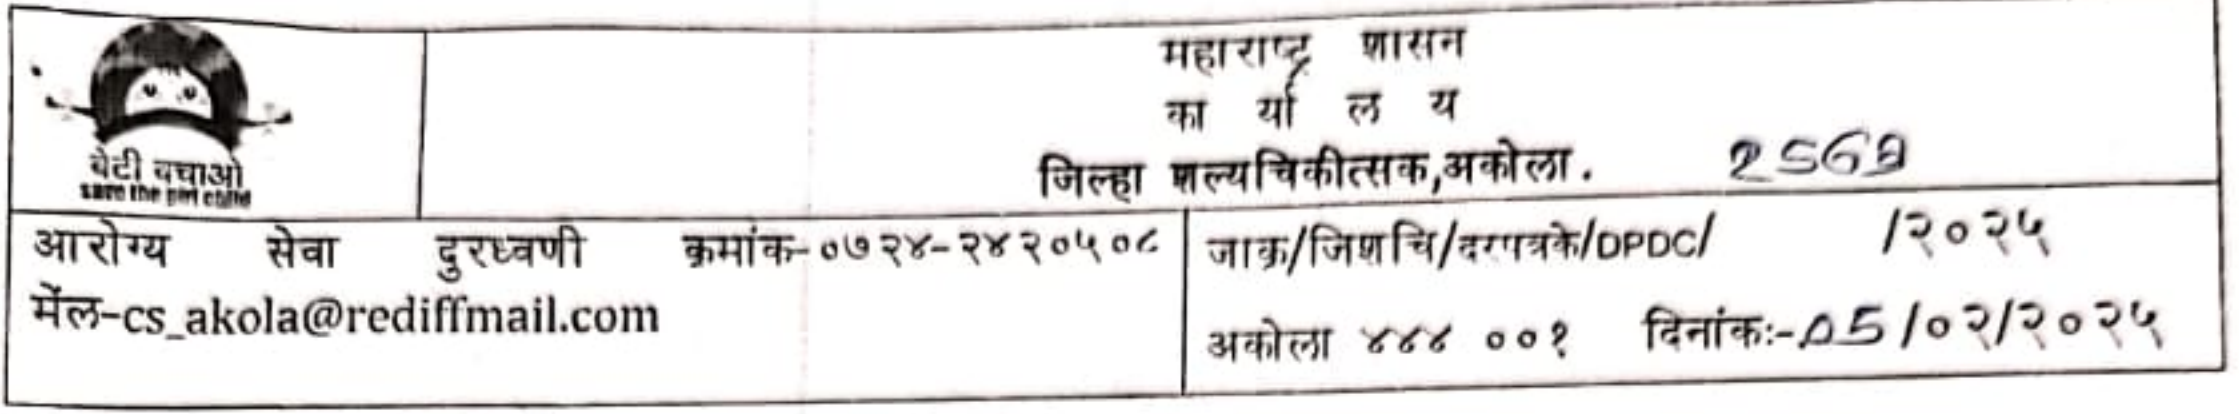 बेटी बचाओ
save the girl child
महाराष्ट्र शासन
का र्या ल य
जिल्हा शल्यचिकीत्सक,अकोला.
आरोग्य सेवा दुरध्वणी क्रमांक-०७२४-२४२०५०८
मेंल-cs_akola@rediffmail.com
जाक्र/जिशचि/दरपत्रके/DPDC/ /२०२५
अकोला ४४४ ००१ दिनांकः-05/०२/२०२५